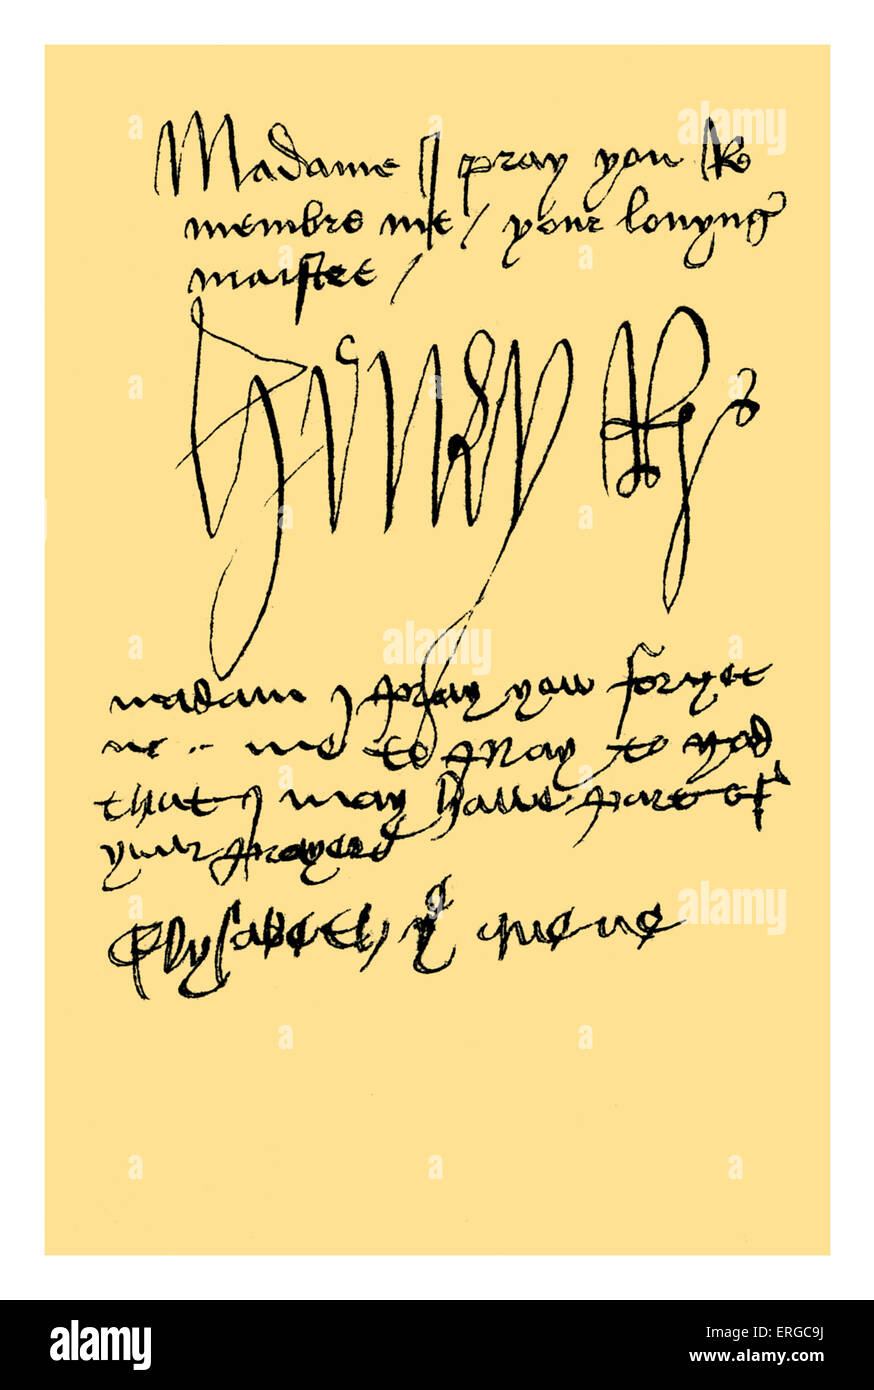 Madame I pray you Re
membre me / your louyng
maistre /
Henry R
madam I pray you forget
not me to pray to god
that I may haue part of
your prayers
Elysabeth ye quene
alamy
Image ID: ERGC9J
www.alamy.com